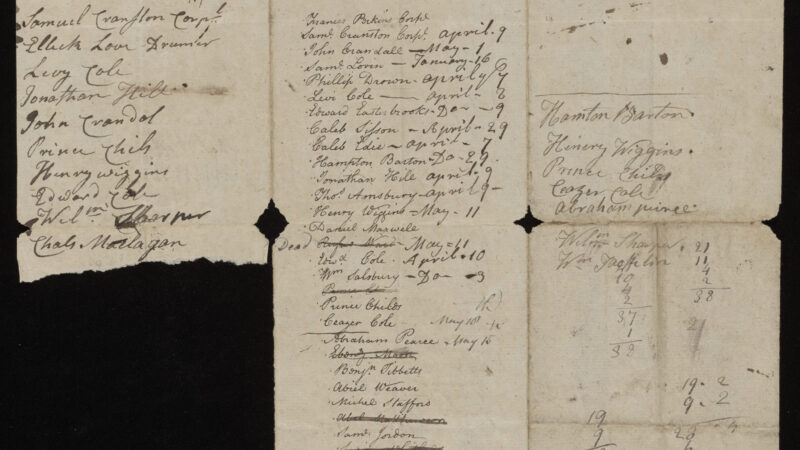 Samuel Cranston Corpl.
Elleck Love Drumer
Levy Cole
Jonathan Hill
John Crandol
Prince Chils
Henry wiggins
Edward Cole
Wilm. Sharper
Chals
Francis Perkins Corpl
Saml. Cranston Corpl. April. 9
John Crandall May - 1
Saml. Lovin - January - 16
Phillip Drown - April 6
Levi Cole - april - 8
Edward Easterbrooks - Do - 9
Caleb Sisson - April - 29
Caleb Edie - april - 7
Hampton Barton - Do - 29
Jonathan Hill april 9
Thos. Amsbury - april 9 -
Henry Wiggins - May - 11
Daniel Maxwell
Dead May - 11
Edwd Cole. April. 10
Wm Salsbury - Do - 3
Prince
Prince Childs
Ceazer Cole May 18th
Abraham Pearce - May 15
Ebenz.
Benjn. Tibbetts
Abiel Weaver
Michel Stafford
Abel
Saml. Jordon
Hamton Barton
Hinery Wiggins.
Prince Childs
Ceazer Cole
Abraham peirce
Wilm Sharper. 21
Wm 11
10 4
4 2
2 38
37 21
1
38
19. 2
9. 2
19
9 29 4